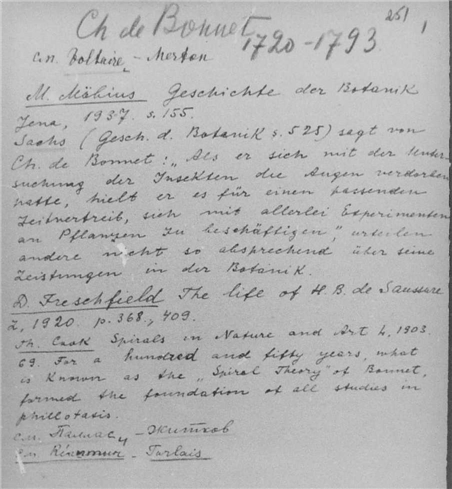 Ch de Bonnet 251 1
1720-1793
см. Voltaire, - Merton
M. Möbius Geschichte der Botanik
Jena, 1937. s. 155.
Sachs (Gesch. d. Botanik s. 525) sagt von
Ch. de Bonnet: „Als er sich mit der Unter-
suchung der Insekten die Augen verdorben
hatte, hielt er es für einen passenden
Zeitvertreib, sich mit allerlei Experimenten
an Pflanzen zu beschäftigen", urteilen
andere nicht so absprechend über seine
Leistungen in der Botanik.
D. Freschfield The life of H. B. de Saussure
L, 1920. p. 368, 409.
Th. Cook Spirals in Nature and Art L, 1903.
69. For a hundred and fifty years, what
is known as the „Spiral Theory" of Bonnet,
formed the foundation of all studies in
phillotaxis.
см. Паллас, - Житков
см. Réaumur - Torlais